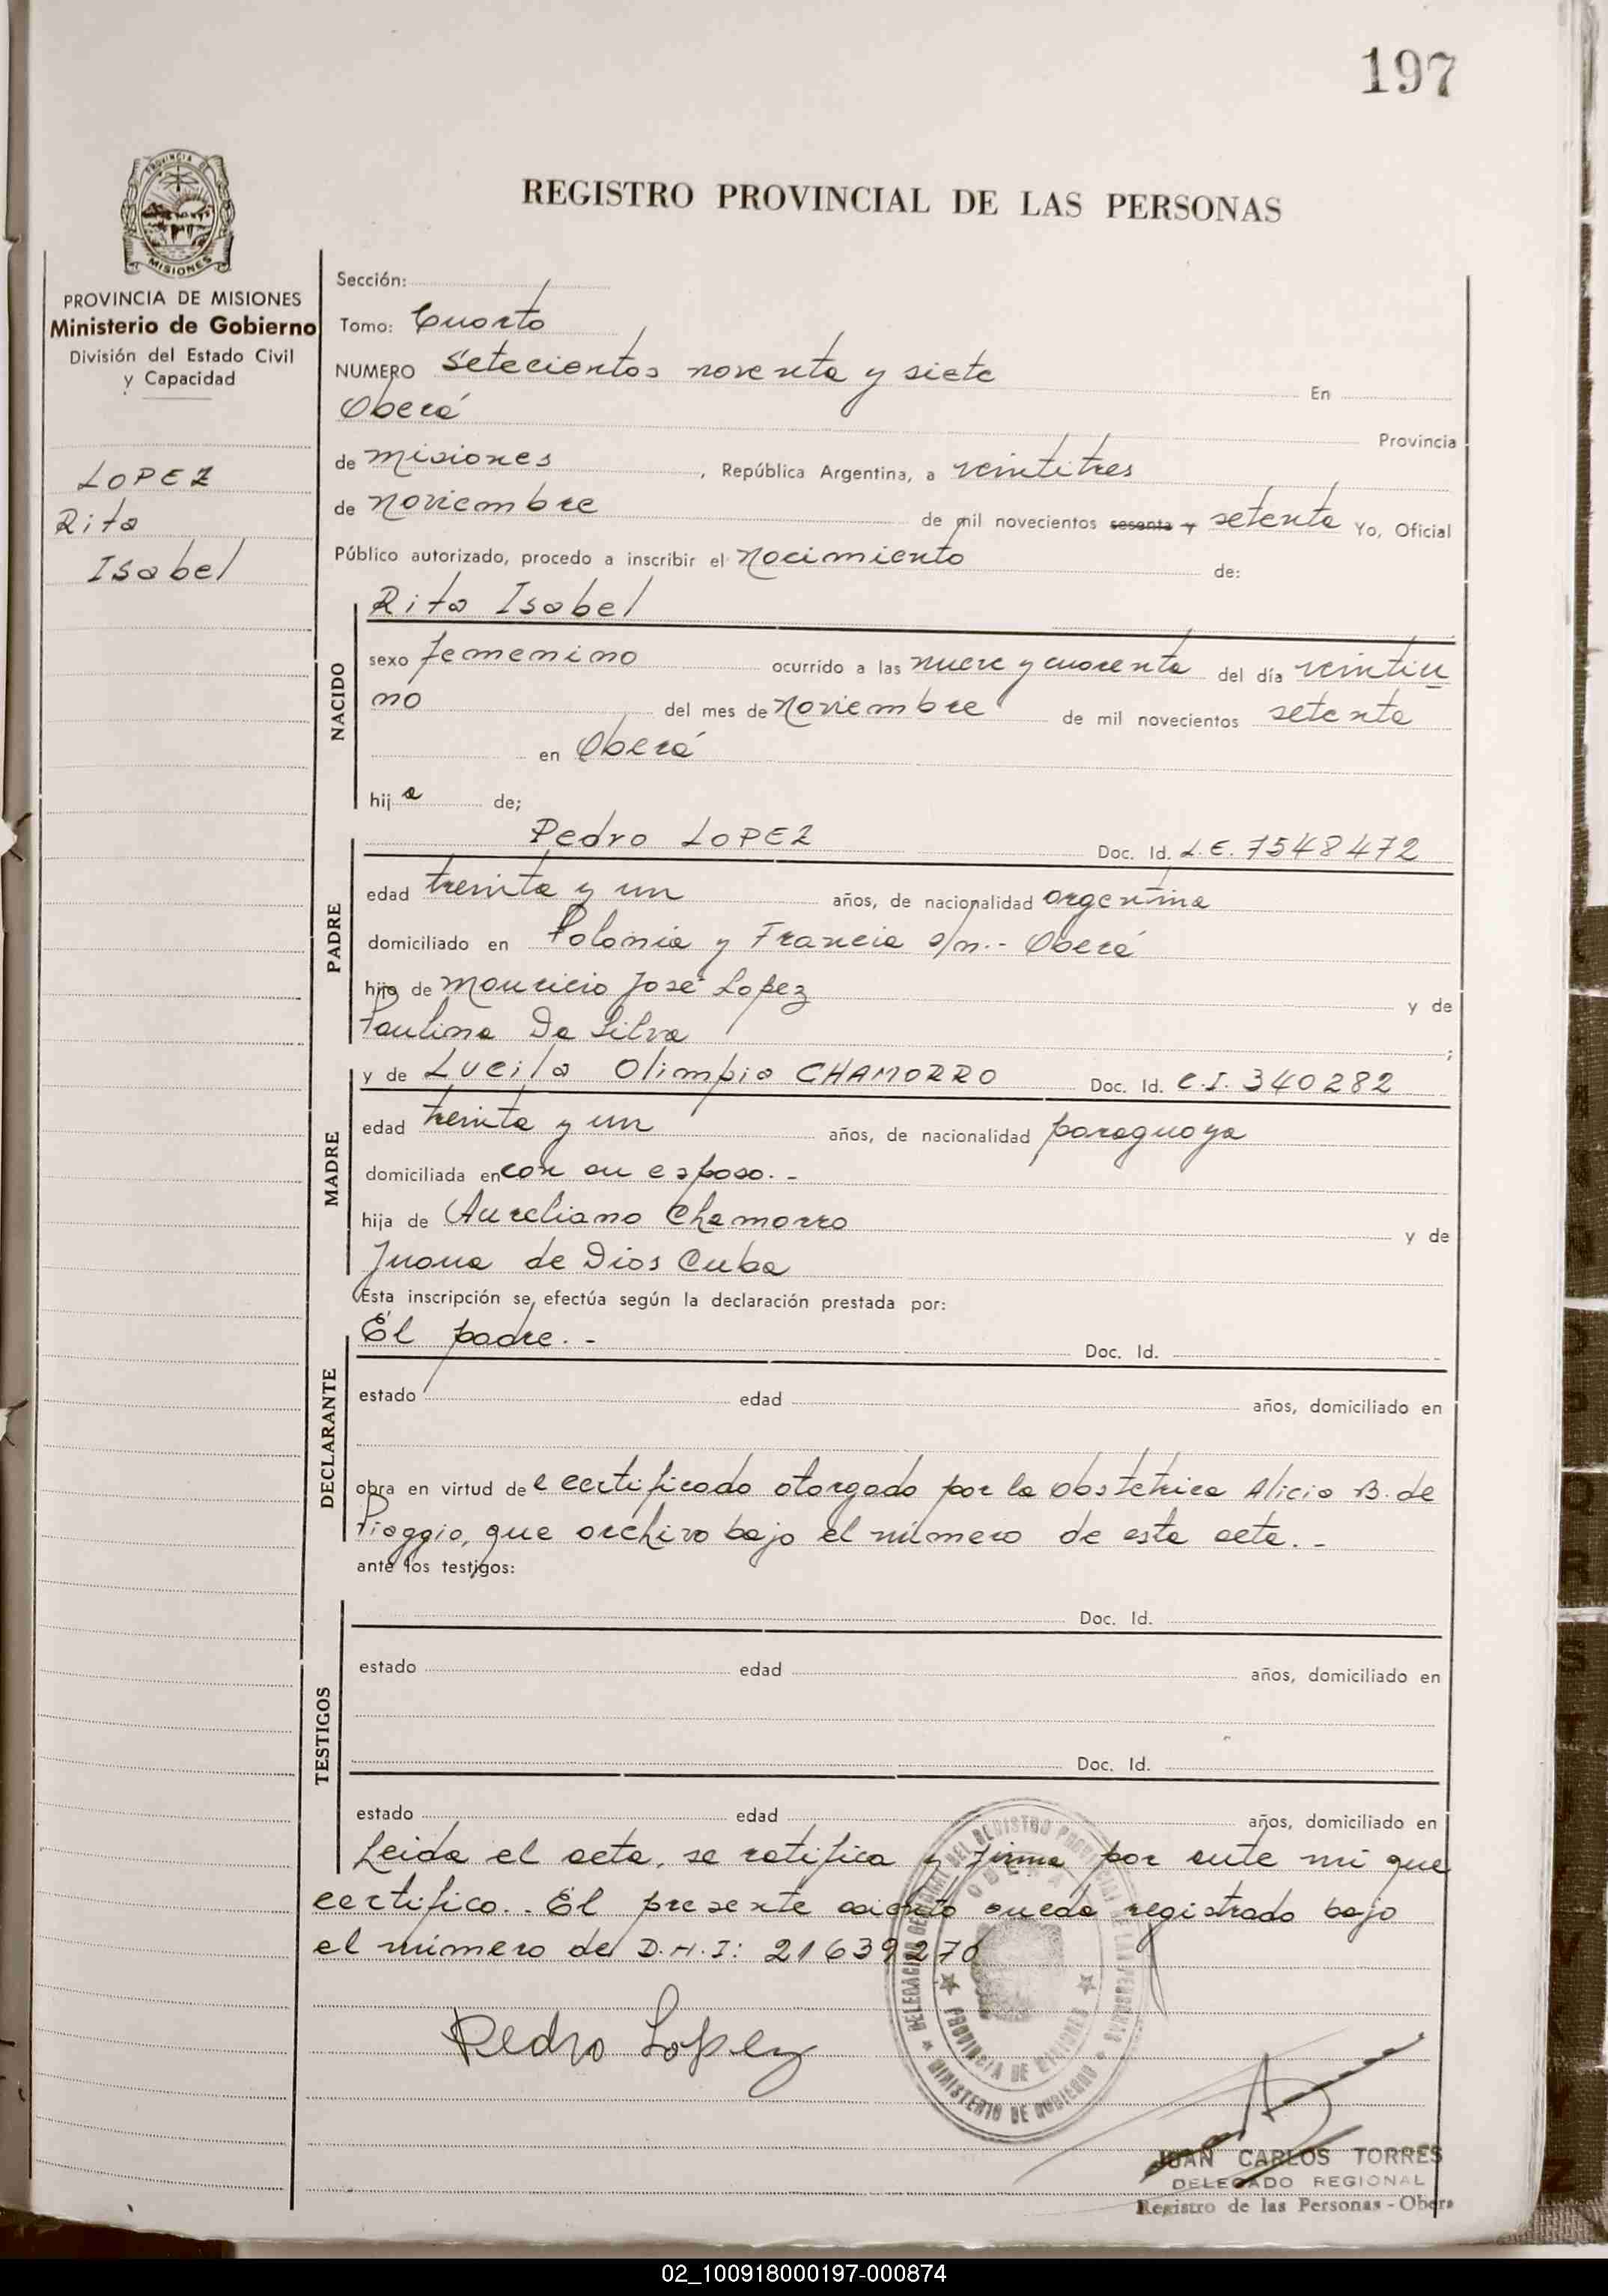 197
REGISTRO PROVINCIAL DE LAS PERSONAS
PROVINCIA DE
MISIONES
PROVINCIA DE MISIONES
Ministerio de Gobierno
División del Estado Civil
y Capacidad
LOPEZ
Rita
Isabel
Sección:
Tomo: Cuarto
NUMERO Setecientos noventa y siete En
Oberá Provincia
de Misiones, República Argentina, a veintitres
de noviembre de mil novecientos sesenta y setenta Yo, Oficial
Público autorizado, procedo a inscribir el nacimiento de:
NACIDO
Rita Isabel
sexo femenino ocurrido a las nueve y cuarenta del día veintiu
no del mes de Noviembre de mil novecientos setenta
en Oberá
hija de;
PADRE
Pedro LOPEZ Doc. Id. L.E. 7548472
edad treinta y un años, de nacionalidad argentina
domiciliado en Polonia y Francia s/n.- Oberá
hijo de Mauricio José Lopez y de
Paulina Da Silva ;
MADRE
y de Lucila Olimpia CHAMORRO Doc. Id. C.I. 340282
edad treinta y un años, de nacionalidad paraguaya
domiciliada en con su esposo.-
hija de Aureliano Chamorro y de
Juana de Dios Cuba
Esta inscripción se efectúa según la declaración prestada por:
DECLARANTE
El padre.- Doc. Id.
estado edad años, domiciliado en
obra en virtud del certificado otorgado por la obstetrica Alicia B. de
Piaggio, que archivo bajo el número de esta acta.-
ante los testigos:
TESTIGOS
Doc. Id.
estado edad años, domiciliado en
Doc. Id.
estado edad años, domiciliado en
Leida el acta, se ratifica y firma por ante mi que
certifico.- El presente asiento queda registrado bajo
el número de D.N.I: 21639270
Pedro Lopez
DELEGACION REGIONAL DEL REGISTRO PROVINCIAL DE LAS PERSONAS
MINISTERIO DE GOBIERNO
OBERA
PROVINCIA DE MISIONES
JUAN CARLOS TORRES
DELEGADO REGIONAL
Registro de las Personas - Obera
02_100918000197-000874